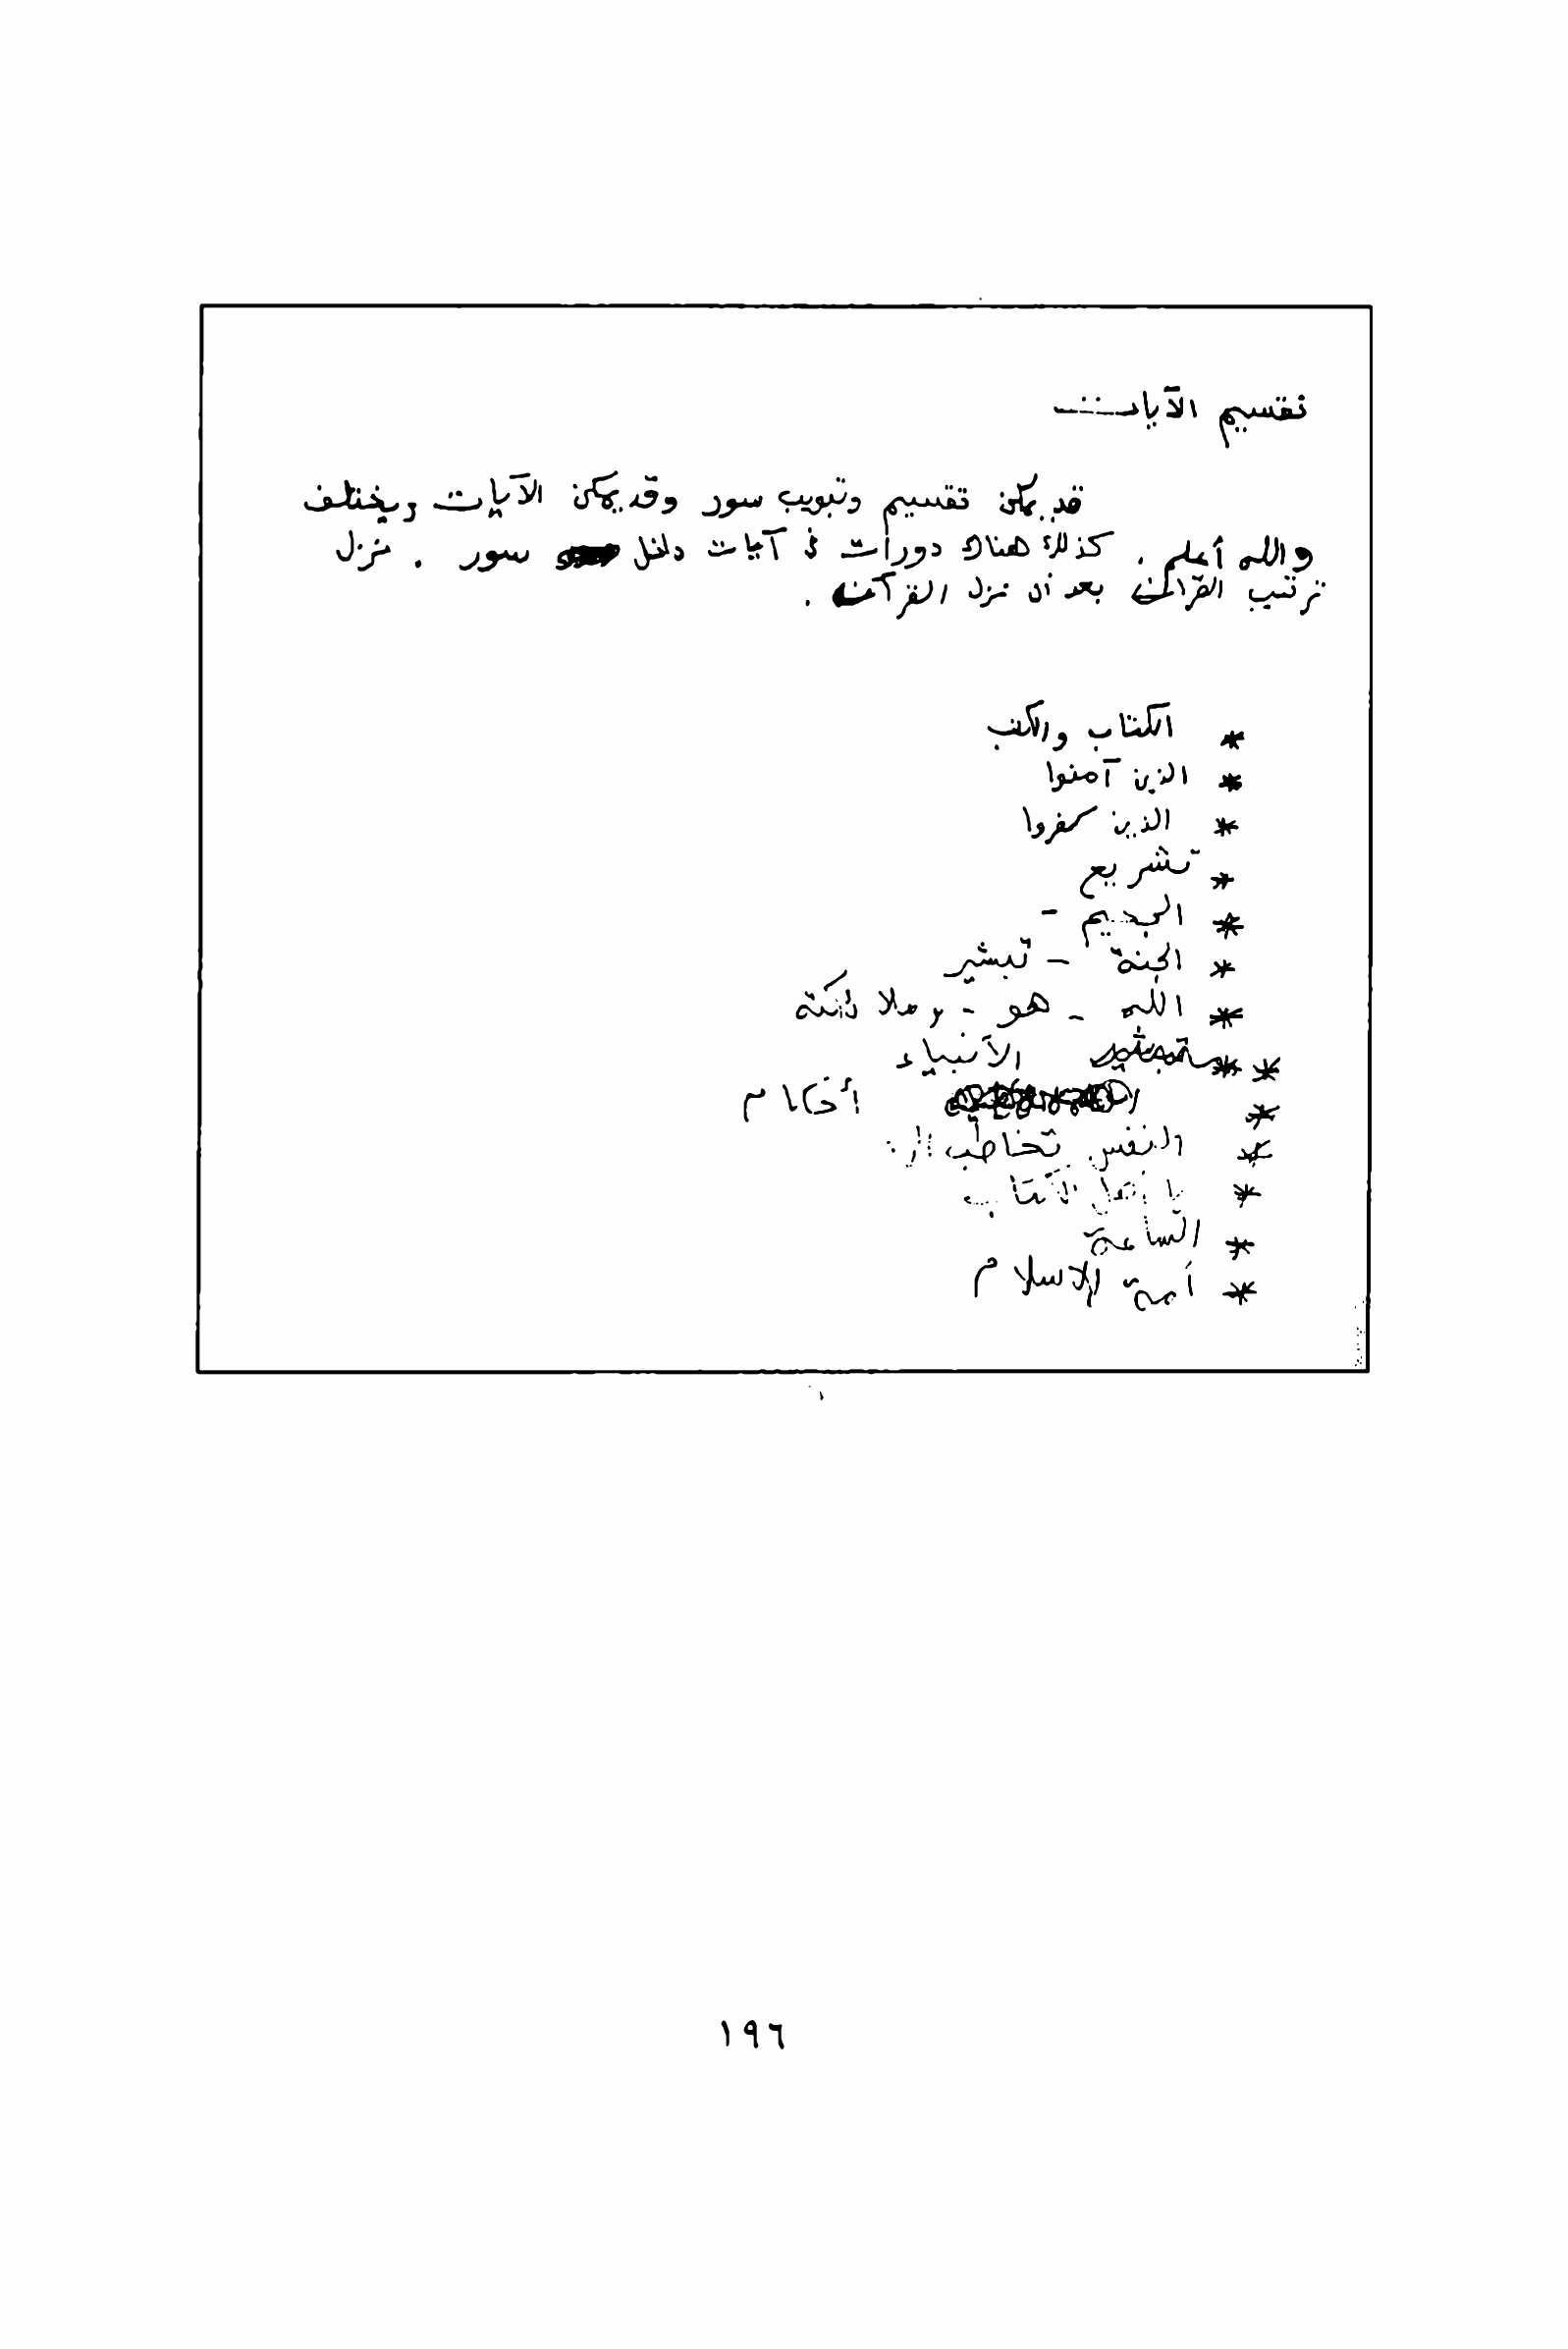 تقسيم الآيات
قد يمكن تقسيم وتبويب سور وقد يمكن الآيات ويختلف
والله أعلم . كذلك هناك دورات في آيات داخل سور . نزل
ترتيب القرآن بعد أن نزل القرآن .
* الكتاب والكتب
* الذين آمنوا
* الذين كفروا
* تشريع
* الجحيم -
* الجنة - تبشير
* الله - هو - وملائكته
* * الأنبياء
* أحكام
* النفس تخاطب
* يا أهل الكتاب
* الساعة
* أمة الإسلام
١٩٦